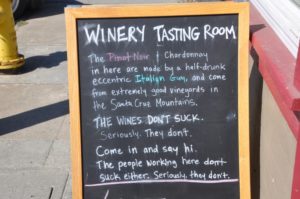 WINERY TASTING ROOM
The Pinot Noir & Chardonnay
in here are made by a half-drunk
eccentric Italian Guy, and come
from extremely good vineyards in
the Santa Cruz Mountains.
THE WINES DON'T SUCK.
Seriously. They don't.
Come in and say hi.
The people working here don't
suck either. Seriously, they don't.